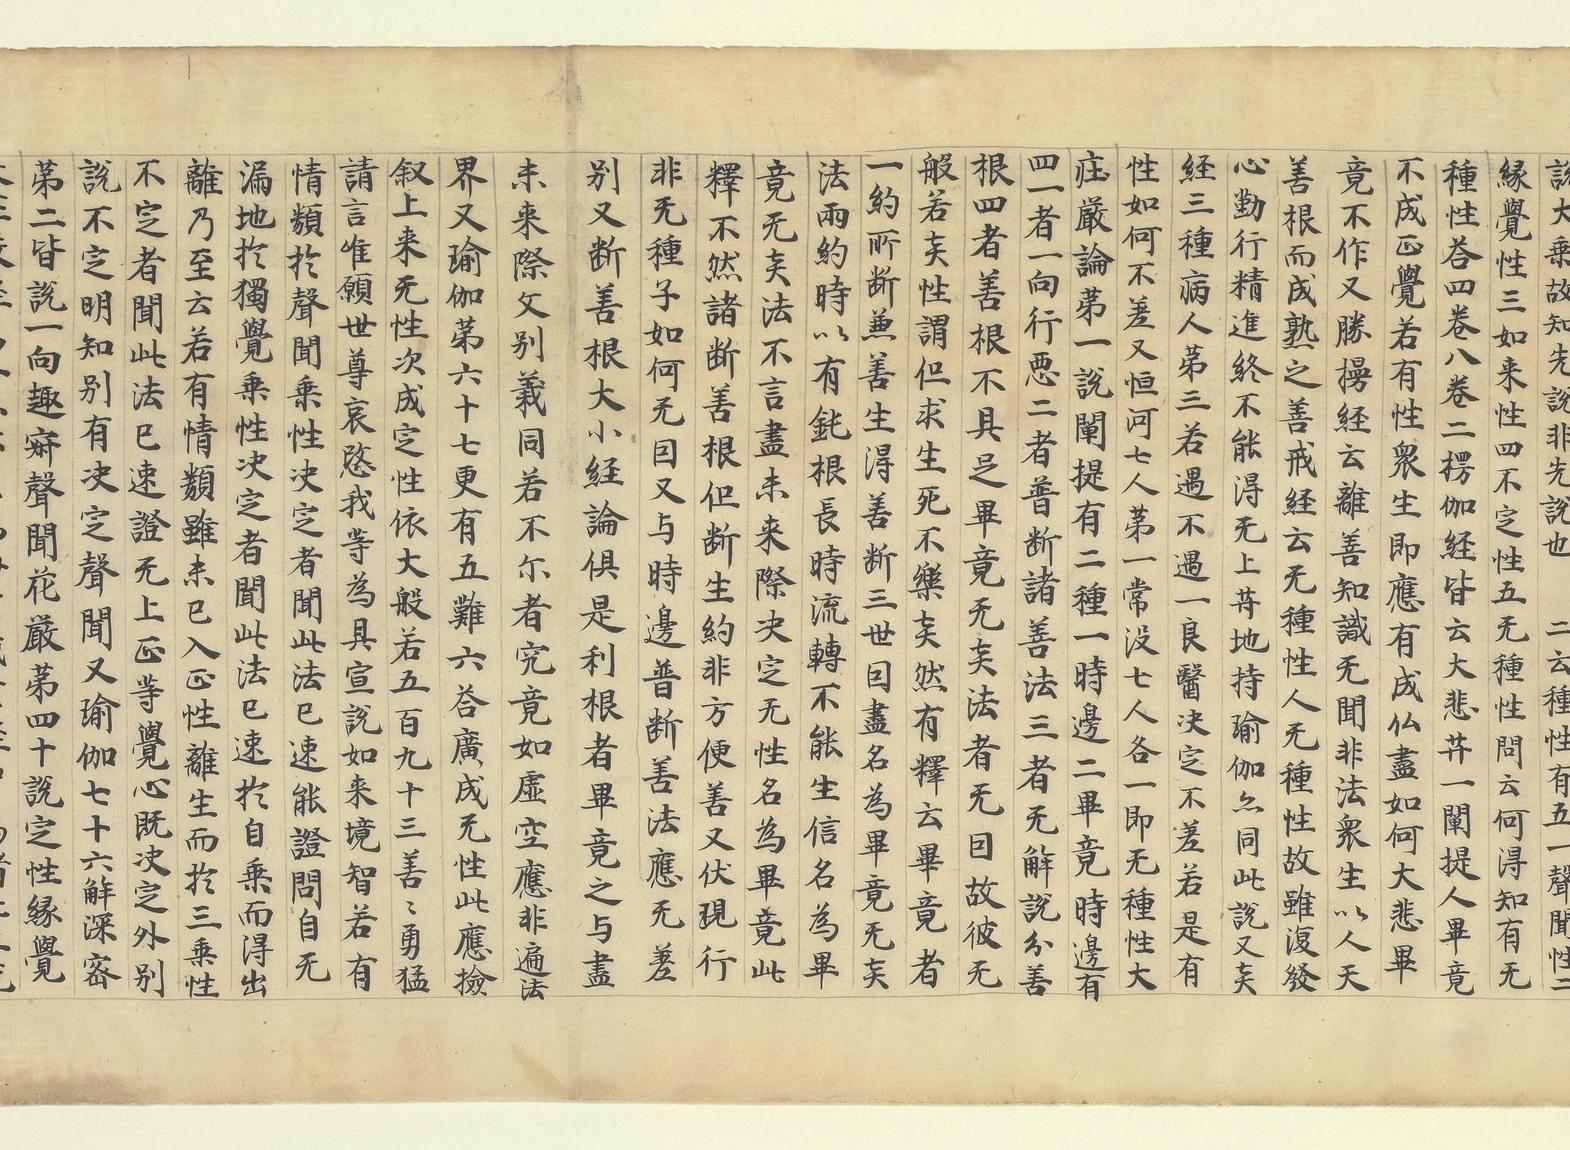 說大乘故知先說非先說也　二云種性有五一聲聞性二
緣覺性三如来性四不定性五无種性問云何得知有无
種性荅四卷八卷二楞伽経皆云大悲𦬇一闡提人畢竟
不成正覺若有性衆生即應有成仏盡如何大悲畢
竟不作又勝鬘経云離善知識无聞非法衆生以人天
善根而成熟之善戒経云无種性人无種性故雖復發
心勤行精進終不能得无上𦬇地持瑜伽亦同此說又𡙇
経三種病人苐三若遇不遇一良醫决定不差若是有
性如何不差又恒河七人苐一常没七人各一即无種性大
庄嚴論苐一說闡提有二種一時邊二畢竟時邊有
四一者一向行悪二者普断諸善法三者无解說分善
根四者善根不具足畢竟无𡙇法者无因故彼无
般若𡙇性謂但求生死不樂𡙇然有釋云畢竟者
一約所断兼善生得善断三世因盡名為畢竟无𡙇
法兩約時以有鈍根長時流轉不能生信名為畢
竟无𡙇法不言盡未来際决定无性名為畢竟此
釋不然諸断善根但断生約非方便善又伏現行
非无種子如何无因又与時邊普断善法應无差
别又断善根大小経論俱是利根者畢竟之与盡
未来際文别義同若不尔者究竟如虚空應非遍法
界又瑜伽苐六十七更有五難六荅廣成无性此應撿
叙上来无性次成定性依大般若五百九十三善〻勇猛
請言惟願世尊哀愍我等為具宣說如来境智若有
情類於聲聞乘性决定者聞此法已速能證問自无
漏地於獨覺乘性决定者聞此法已速於自乘而得出
離乃至云若有情類雖未已入正性離生而於三乘性
不定者聞此法已速證无上正等覺心既决定外别
說不定明知别有决定聲聞又瑜伽七十六解深宻
苐二皆說一向趣寂聲聞花嚴苐四十說定性緣覺